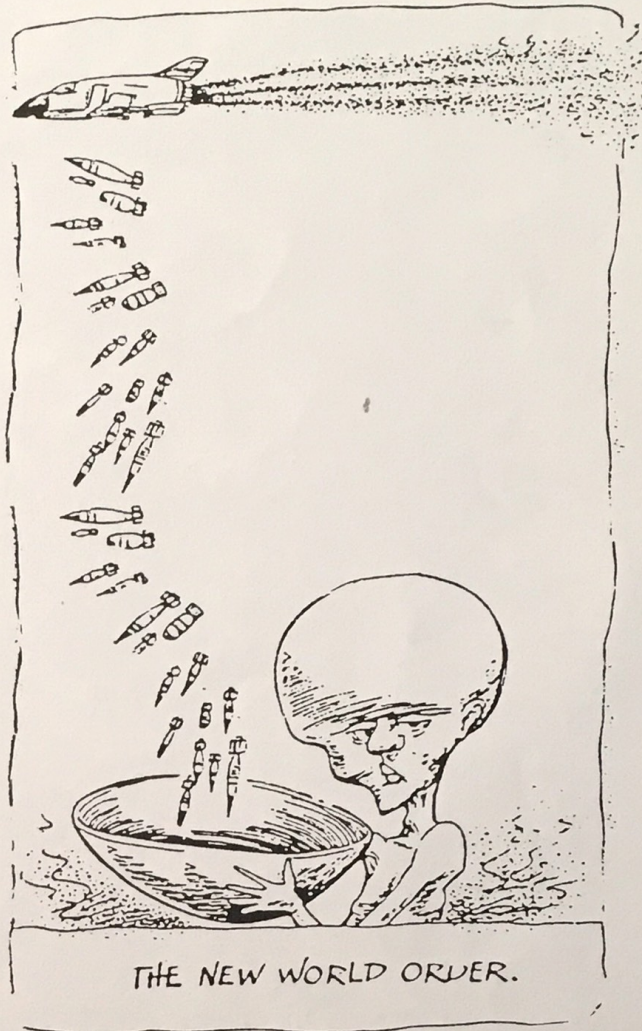 THE NEW WORLD ORDER.